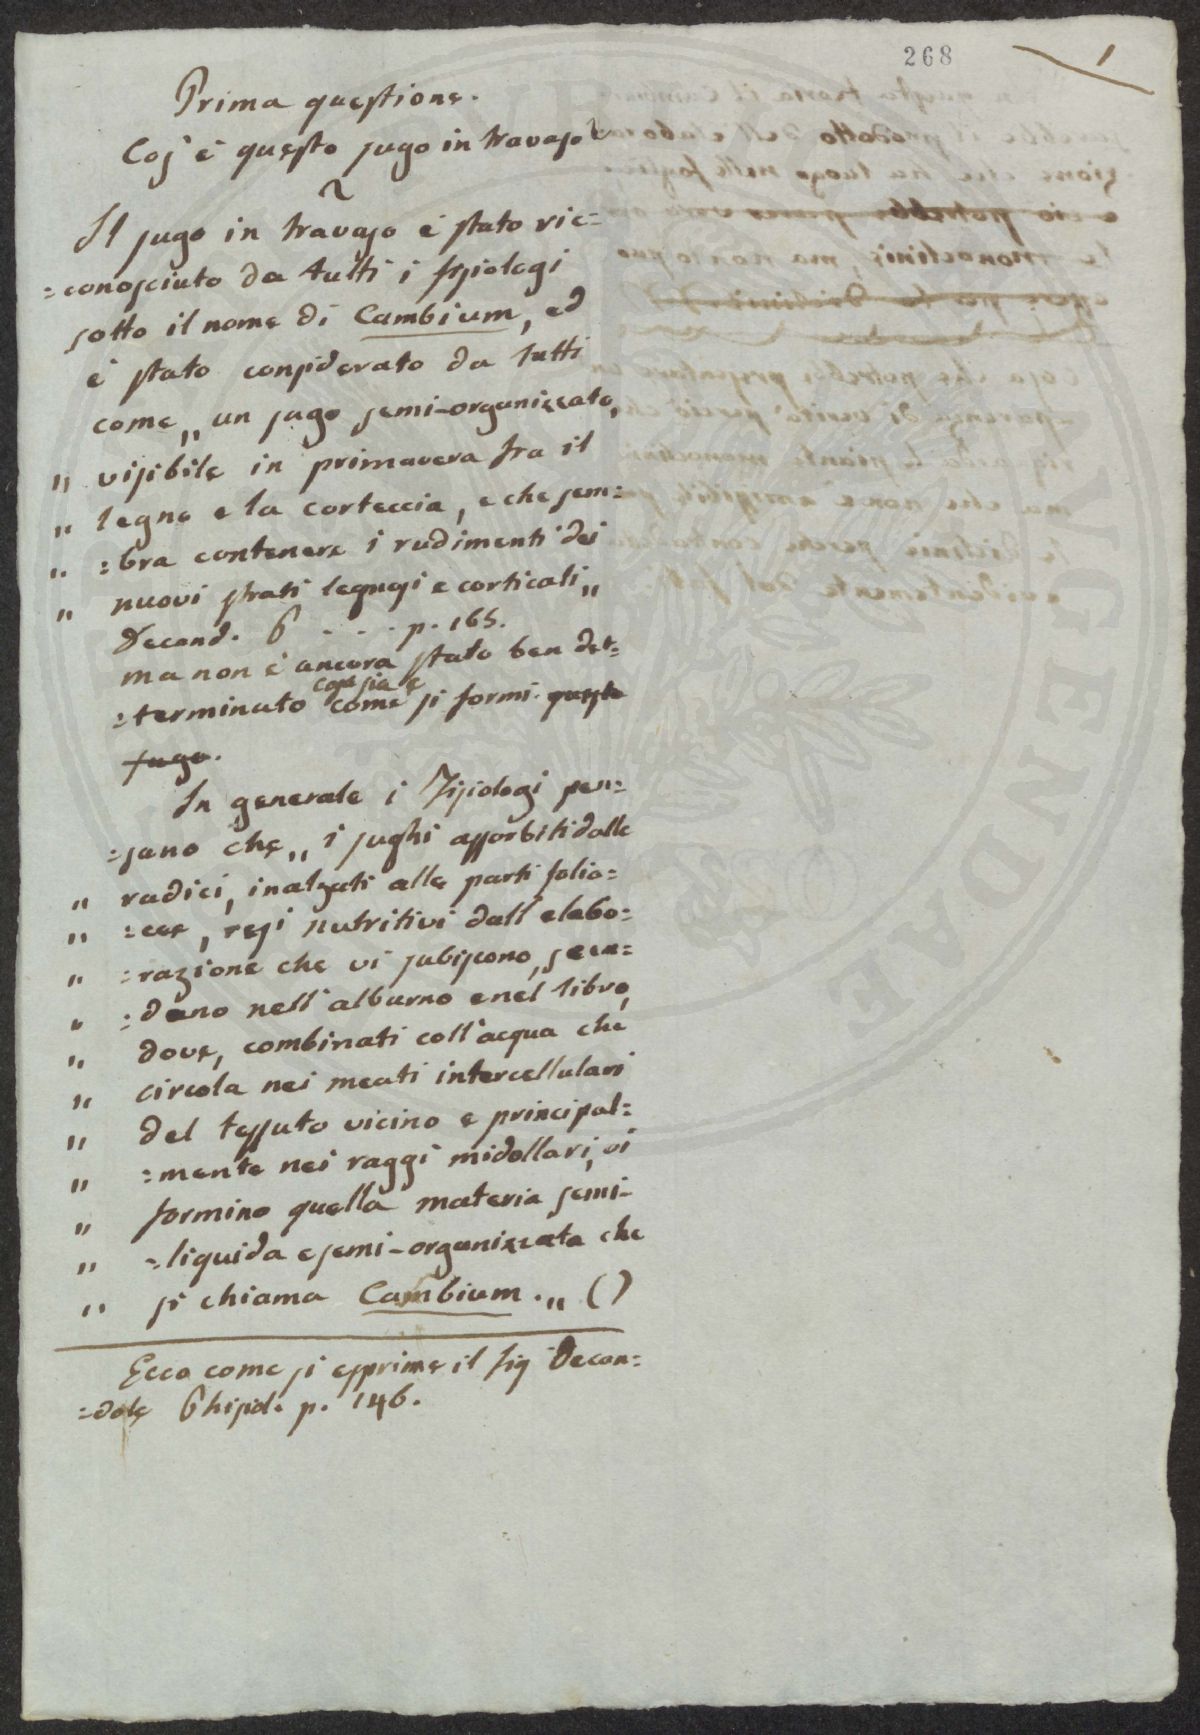 268
1
Prima questione.
Cos' è questo sugo in travaso?
Il sugo in travaso è stato ric=
=conosciuto da tutti i fisiologi
sotto il nome di Cambium, ed
è stato considerato da tutti
come „ un sugo semi-organizzato,
„ visibile in primavera fra il
„ legno e la corteccia, e che sem=
„ =bra contenere i rudimenti dei
„ nuovi strati legnosi e corticali „
Decand. p. 165.
ma non è ancora stato ben det=
=terminato cosa sia e come si formi questo
sugo.
In generale i Fisiologi pen=
=sano che „ i sughi assorbiti dalle
„ radici, inalzati alle parti folia=
„ =cee, resi nutritivi dall' elabo=
„ =razione che vi subiscono, scen=
„ =dano nell' alburno e nel libro,
„ dove, combinati coll' acqua che
„ circola nei meati intercellulari
„ del tessuto vicino e principal=
„ =mente nei raggi midollari, vi
„ formino quella materia semi-
„ =liquida e semi-organizzata che
„ si chiama Cambium. „ ()
Ecco come si esprime il sig Decan=
=dole Phisiol. p. 146.